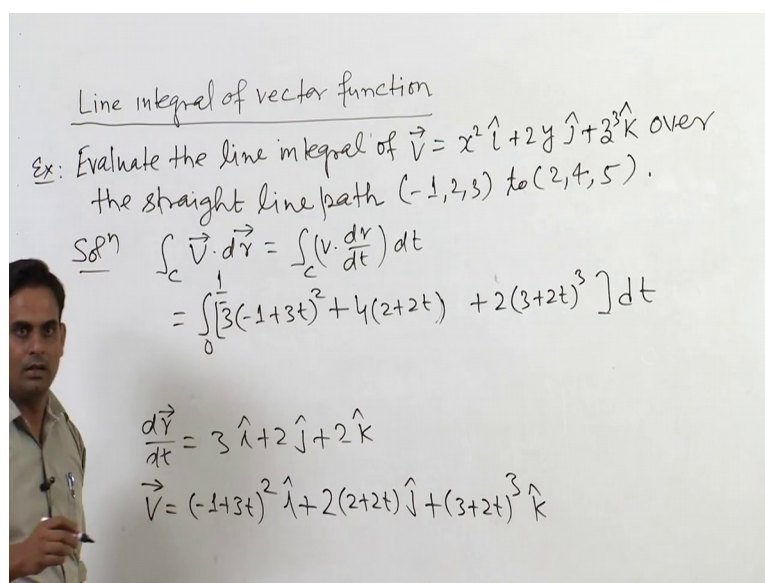 Line integral of vector function
Ex: Evaluate the line integral of V⃗ = x² î + 2y ĵ + z³ k̂ over
the straight line path (-1,2,3) to (2,4,5).
Solⁿ ∫_C V⃗ · dr⃗ = ∫_C (V · dr/dt) dt
= ∫₀¹ [3(-1+3t)² + 4(2+2t) + 2(3+2t)³] dt
dr⃗/dt = 3 î + 2 ĵ + 2 k̂
V⃗ = (-1+3t)² î + 2(2+2t) ĵ + (3+2t)³ k̂